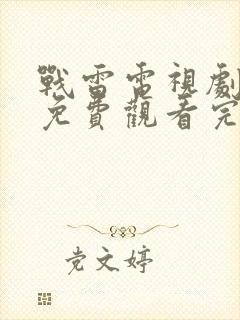 戰雷電視劇
免費觀看完
党文婷